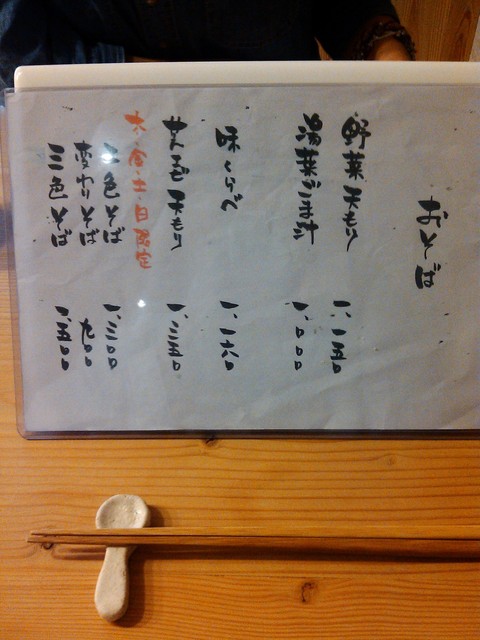 おそば
野菜天もり 一、一五〇
湯葉ごま汁 一、〇〇〇
味くらべ 一、一六〇
天もり 一、三五〇
木・金・土・日限定
二色そば 一、三〇〇
変わりそば 九〇〇
三色そば 一、五〇〇